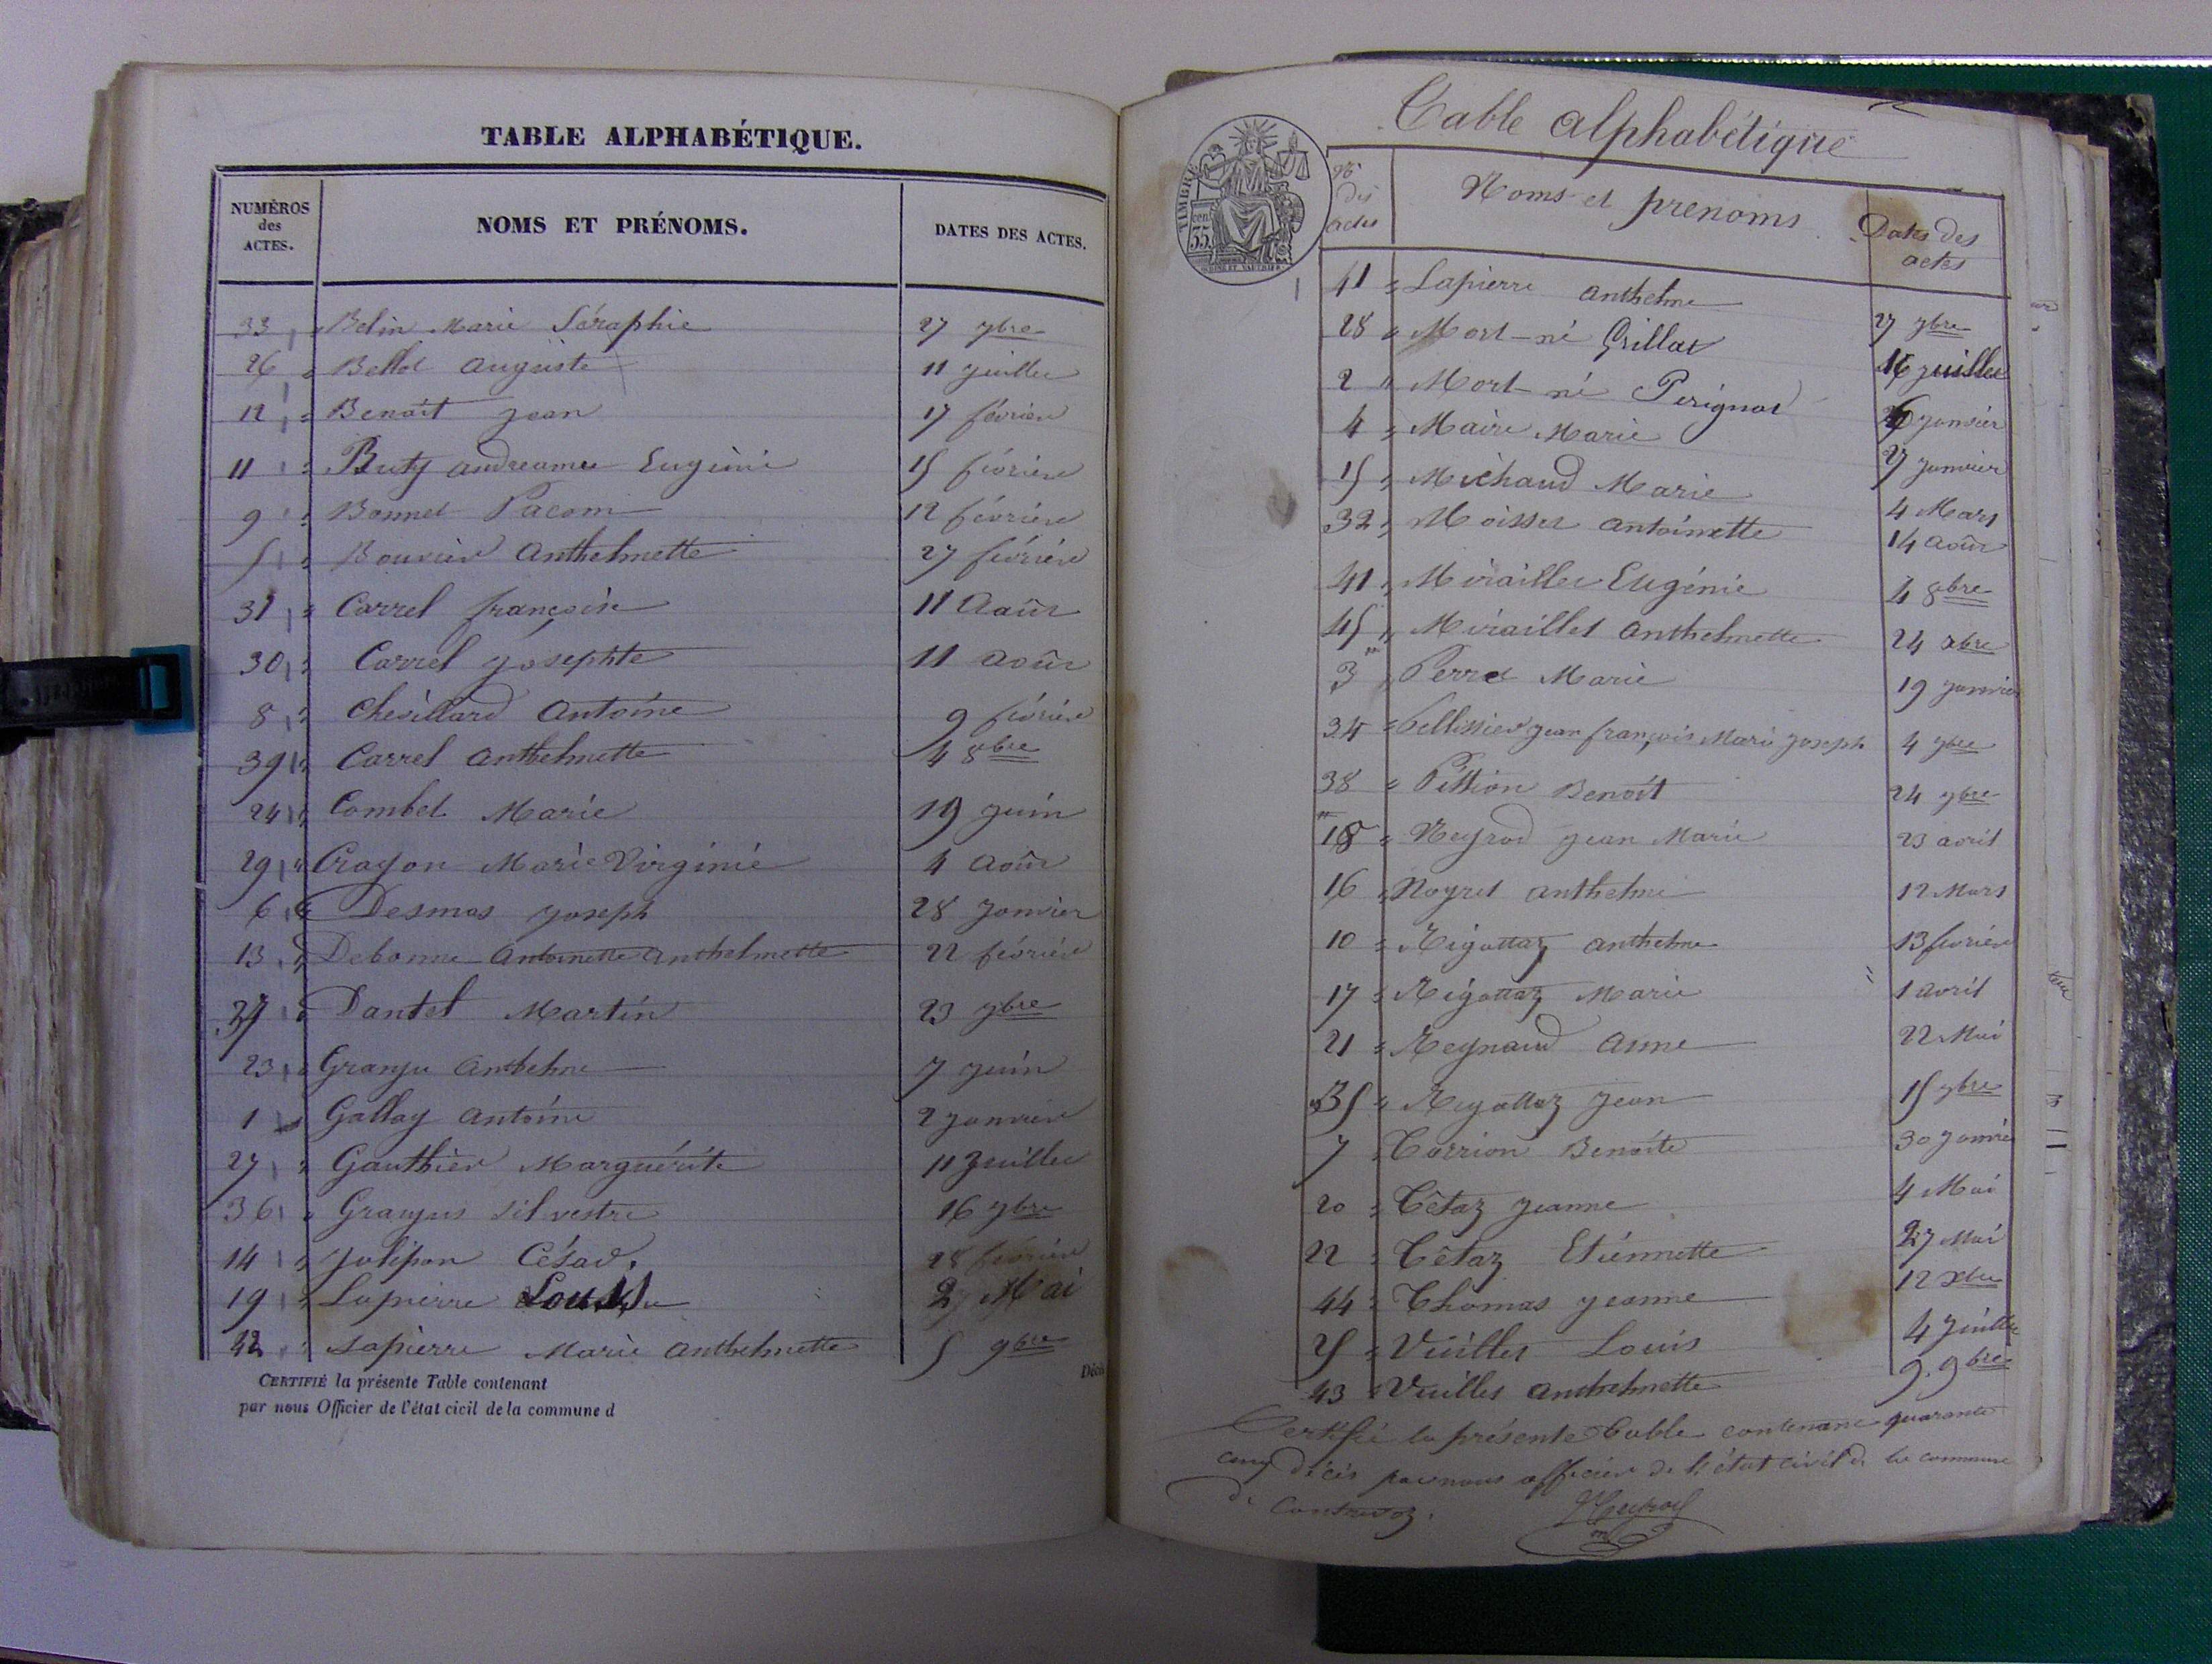 TABLE ALPHABÉTIQUE.
NUMÉROS des ACTES. NOMS ET PRÉNOMS. DATES DES ACTES.
33 Belin Marie Séraphie 27 7bre
26 Bellet Auguste 11 juillet
12 Benoit Jean 17 février
11 Buty Eugénie 15 février
9 Bonnet Pacome 12 février
5 Bouvier Anthelmette 27 février
31 Carrel françoise 11 Août
30 Carrel Josephte 11 août
8 Chevillard Antoine 9 février
39 Carrel Anthelmette 4 8bre
24 Combet Marie 19 juin
29 Crayon Marie Virginie 4 Août
6 Desmas Joseph 28 Janvier
13 Debonne Antoinette Anthelmette 22 février
37 Dantel Martin 23 7bre
23 Granju Anthelme 7 juin
1 Gallay Antoine 2 Janvier
27 Gauthier Marguérite 11 Juillet
36 Granjus Silvestre 16 7bre
14 Jolipon César. 28 février
19 Lapierre Louis 2 Mai
42 Lapierre Marie Anthelmette 5 9bre
CERTIFIÉ la présente Table contenant
par nous Officier de l'état cicil de la commune d
Décè
TIMBRE
cen
35
Table alphabétique
Nos des actes Noms et prenoms Dates des actes
41 Lapierre Anthelme 27 7bre
28 Mort-né Grillat 16 juillet
2 Mort-né Perignat janvier
4 Maire Marie 27 janvier
15 Michaud Marie 4 Mars
32 Moisset Antoinette 14 août
41 Miraillet Eugénie 4 8bre
45 Miraillet Anthelmette 24 xbre
3 Perret Marie 19 janvier
34 Pellissier jean françois Marie Joseph 4 7bre
38 Pittion Benoit 24 7bre
18 Neyrod Jean Marie 23 avril
16 Noyret Anthelme 12 Mars
10 Rigottaz Anthelme 13 février
17 Rigottaz Marie 1 avril
21 Reynaud Anne 22 Mai
35 Rigottaz Jean 15 7bre
7 Torrion Benoite 30 Janvie
20 Tétaz Jeanne 4 Mai
22 Tétaz Etiennette 27 Mai
44 Thomas Jeanne 12 xbre
25 Vuillet Louis 4 Juillet
43 Vuillet Anthelmette 9. 9bre
Certifié la présente Table contenant quarante
cinq décès par nous officier de l'état civil de la commune
de Contrevoz.
Neyrod